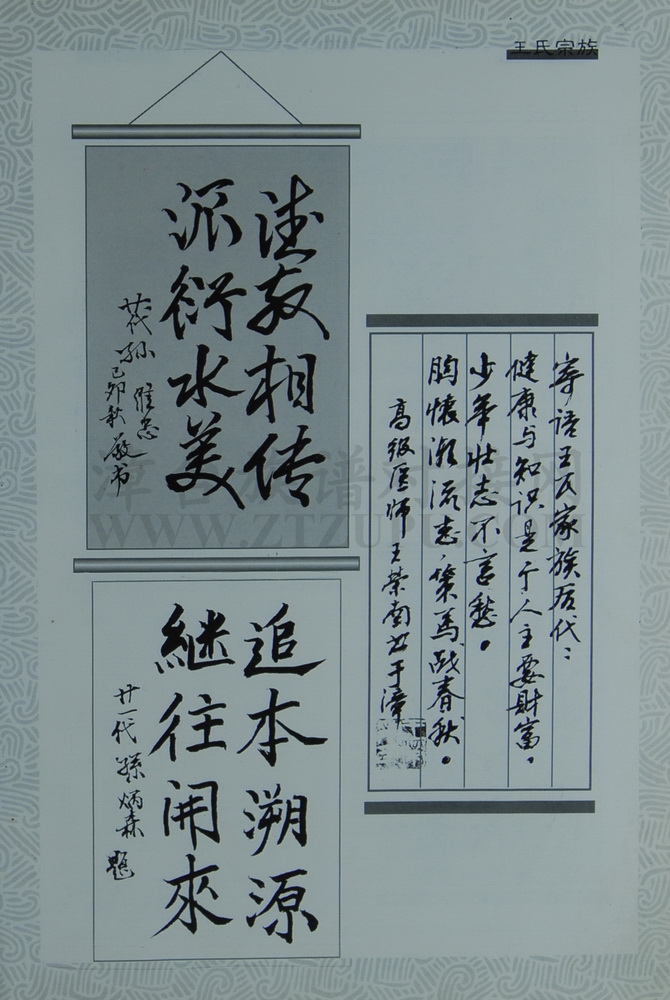 王氏宗族
德教相传
派衍水美
裔孙
己卯秋敬书
寄语王氏家族后代：
健康与知识是个人主要财富，
少年壮志不言愁。
胸怀潮流志，策马战春秋。
高级医师王荣南书于漳
追本溯源
継往開來
廿一代孫炳森題
WWW.ZTZUPU.COM